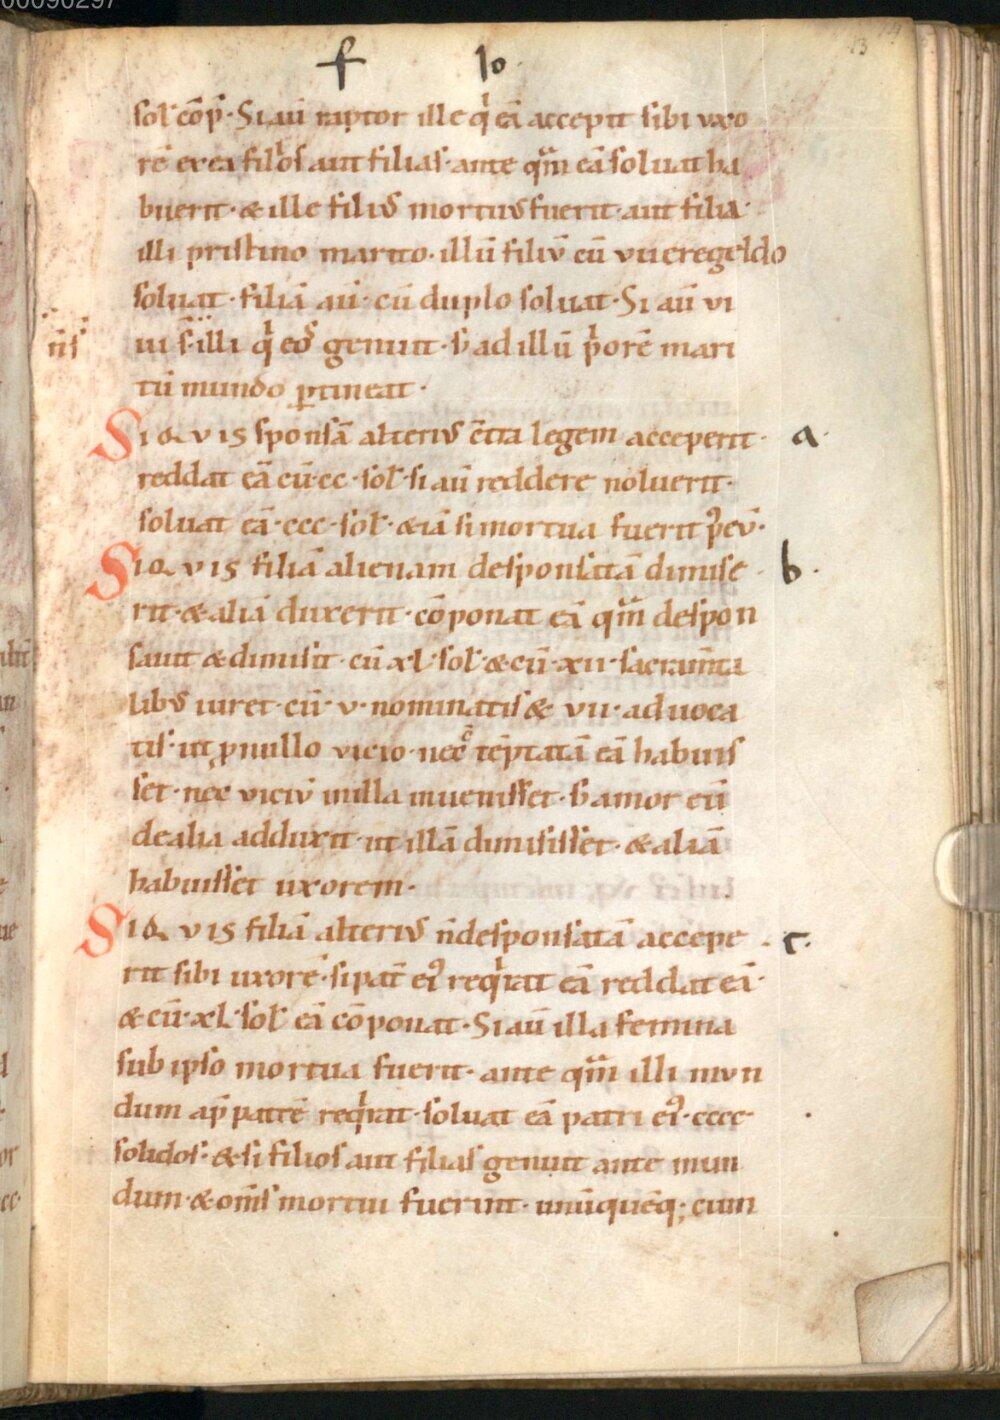 f lo
sol̄ cōp̄. Si aū raptor ille q̇ eā accepit sibi uxo
rē ex ea filios aut filias. ante quā eā soluat ha
buerit. & ille filius mortuus fuerit. aut filia.
illi pristino marito. illū filiū cū vueregeldo
soluat. filiā aū. cū duplo soluat. Si aū vi
n̄s̄ ui s̄. illi q̇ eos genuit. s̄ ad illū p̓orē mari
tū mundo ꝑtineat.
SI Q VIS sponsā alterius c̄tra legem acceperit. a.
reddat eā cū .cc. sol̄. si aū reddere noluerit.
soluat eā .cccc. sol̄. & iā si mortua fuerit p̄ eū.
SI Q VIS filiā alienam desponsatā dimise b.
rit. & aliā duxerit. cōponat eā quā despon
sauit & dimisit. cū .xl. sol̄. & cū .xii. sacram̄ta
libus iuret. cū .v. nominatis & vii. aduoca
tis. ut ꝓ nullo vicio. nec tēptatā eā habuis
set. nec viciū in illa inuenisset. s̄ amor eū
de alia adduxit. ut illā dimisisset. & aliā
habuisset uxorem.
SI Q VIS filiā alterius n̄ desponsatā accepe c.
rit sibi uxorē. si pat̄ ei9 req̇rat eā reddat eā.
& cū .xl. sol̄ eā cōponat. Si aū illa femina
sub ipso mortua fuerit. ante quā illi mun
dum ap̄ patrē req̇rat. soluat eā patri ei9. cccc.
solidos. & si filios aut filias genuit ante mun
dum. & om̄s mortui fuerint. unūquēq; cum